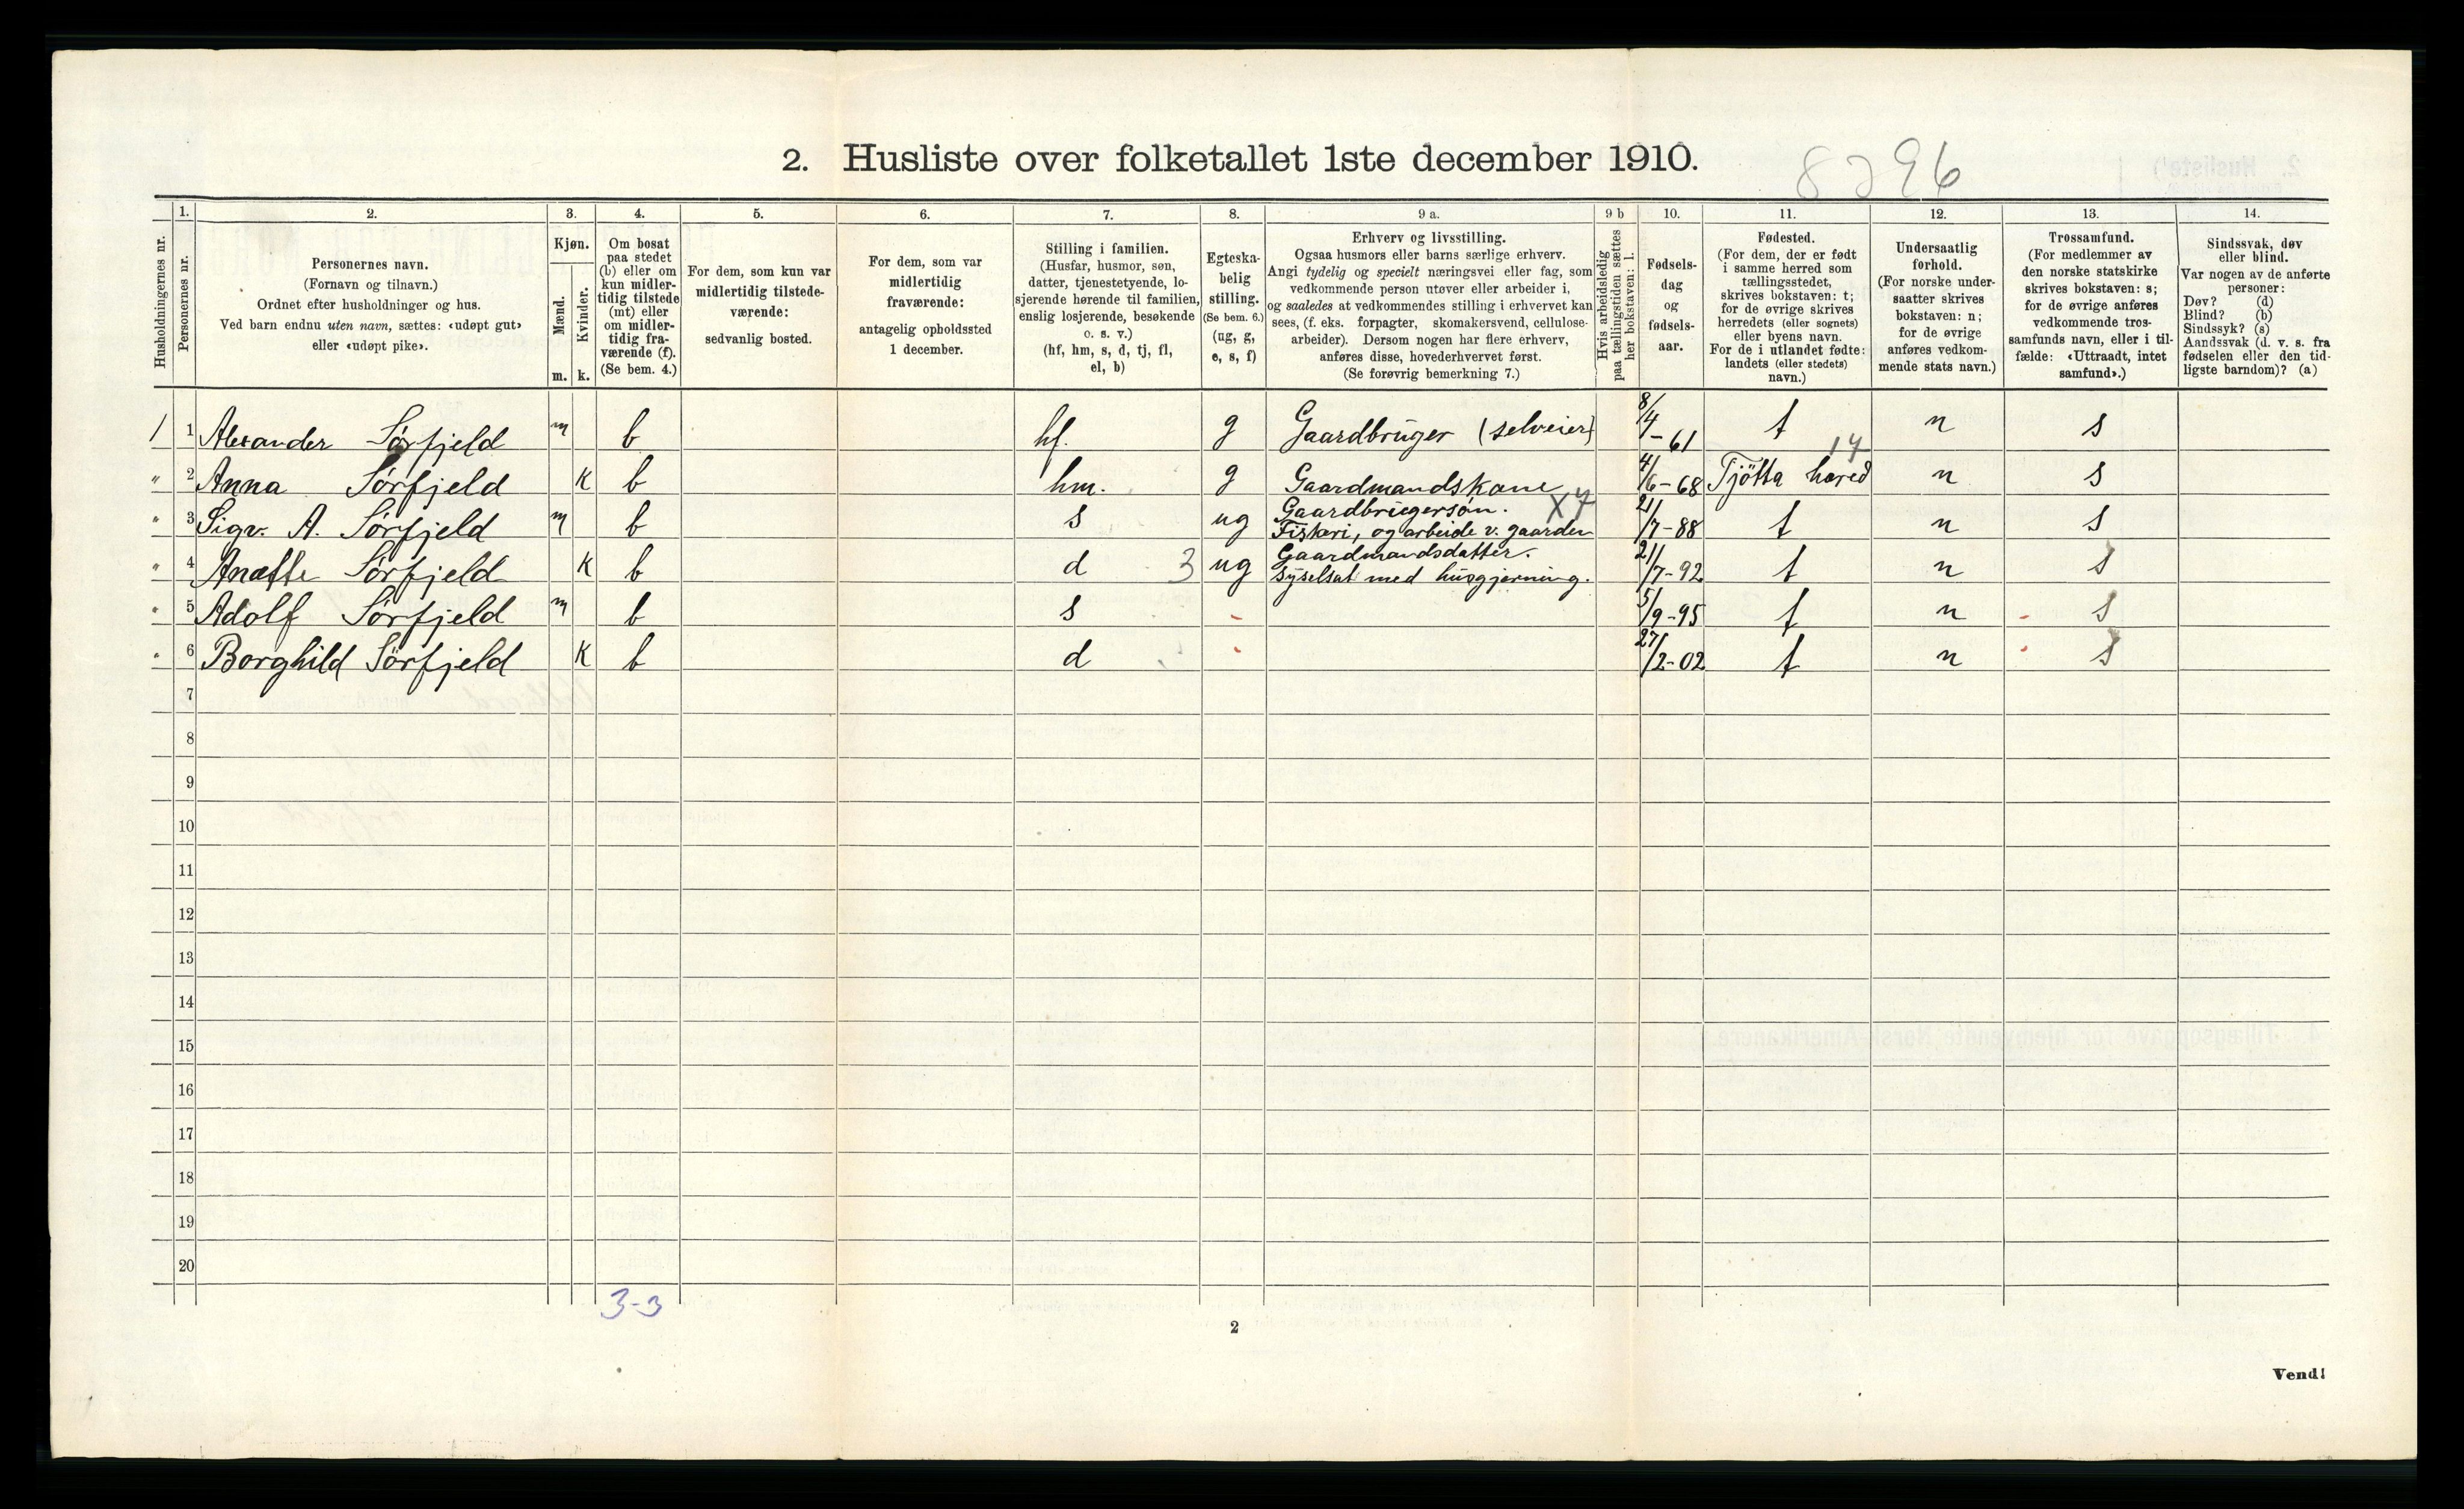 2. Husliste over folketallet 1ste december 1910.
8296
1. 2. 3. 4. 5. 6. 7. 8. 9 a. 9 b 10. 11. 12. 13. 14.
Husholdningernes nr.
Personernes nr.
Personernes navn.
(Fornavn og tilnavn.)
Ordnet efter husholdninger og hus.
Ved barn endnu uten navn, sættes: «udøpt gut»
eller «udøpt pike».
Kjøn.
Mænd.
Kvinder.
m. k.
Om bosat
paa stedet
(b) eller om
kun midler-
tidig tilstede
(mt) eller
om midler-
tidig fra-
værende (f).
(Se bem. 4.)
For dem, som kun var
midlertidig tilstede-
værende:
sedvanlig bosted.
For dem, som var
midlertidig
fraværende:
antagelig opholdssted
1 december.
Stilling i familien.
(Husfar, husmor, søn,
datter, tjenestetyende, lo-
sjerende hørende til familien,
enslig losjerende, besøkende
o. s. v.)
(hf, hm, s, d, tj, fl,
el, b)
Egteska-
belig
stilling.
(Se bem. 6.)
(ug, g,
e, s, f)
Erhverv og livsstilling.
Ogsaa husmors eller barns særlige erhverv.
Angi tydelig og specielt næringsvei eller fag, som
vedkommende person utøver eller arbeider i,
og saaledes at vedkommendes stilling i erhvervet kan
sees, (f. eks. forpagter, skomakersvend, cellulose-
arbeider). Dersom nogen har flere erhverv,
anføres disse, hovederhvervet først.
(Se forøvrig bemerkning 7.)
Hvis arbeidsledig
paa tællingstiden sættes
her bokstaven: l.
Fødsels-
dag
og
fødsels-
aar.
Fødested.
(For dem, der er født
i samme herred som
tællingsstedet,
skrives bokstaven: t;
for de øvrige skrives
herredets (eller sognets)
eller byens navn.
For de i utlandet fødte:
landets (eller stedets)
navn.)
Undersaatlig
forhold.
(For norske under-
saatter skrives
bokstaven: n;
for de øvrige
anføres vedkom-
mende stats navn.)
Trossamfund.
(For medlemmer av
den norske statskirke
skrives bokstaven: s;
for de øvrige anføres
vedkommende tros-
samfunds navn, eller i til-
fælde: «Uttraadt, intet
samfund».)
Sindssvak, døv
eller blind.
Var nogen av de anførte
personer:
Døv? (d)
Blind? (b)
Sindssyk? (s)
Aandssvak (d. v. s. fra
fødselen eller den tid-
ligste barndom)? (a)
1 1 Alexander Sørfjeld m b hf. g Gaardbruger (selveier) 8/4-61 t n s
" 2 Anna Sørfjeld K b hm. g Gaardmandskone 4/6-68 Tjötta hered 14 n s
" 3 Sigv. A. Sørfjeld m b s ug Gaardbrugersøn. X7
Fiskeri, og arbeide v. gaarden 21/7-88 t n s
" 4 Anætte Sørfjeld K b d 3 ug Gaardmandsdatter.
syselsat med husgjerning. 21/7-92 t n s
" 5 Adolf Sørfjeld m b s - 5/9-95 t n s
" 6 Borghild Sörfjeld K b d - 27/2-02 t n s
7
8
9
10
11
12
13
14
15
16
17
18
19
20
3-3
2
Vend!